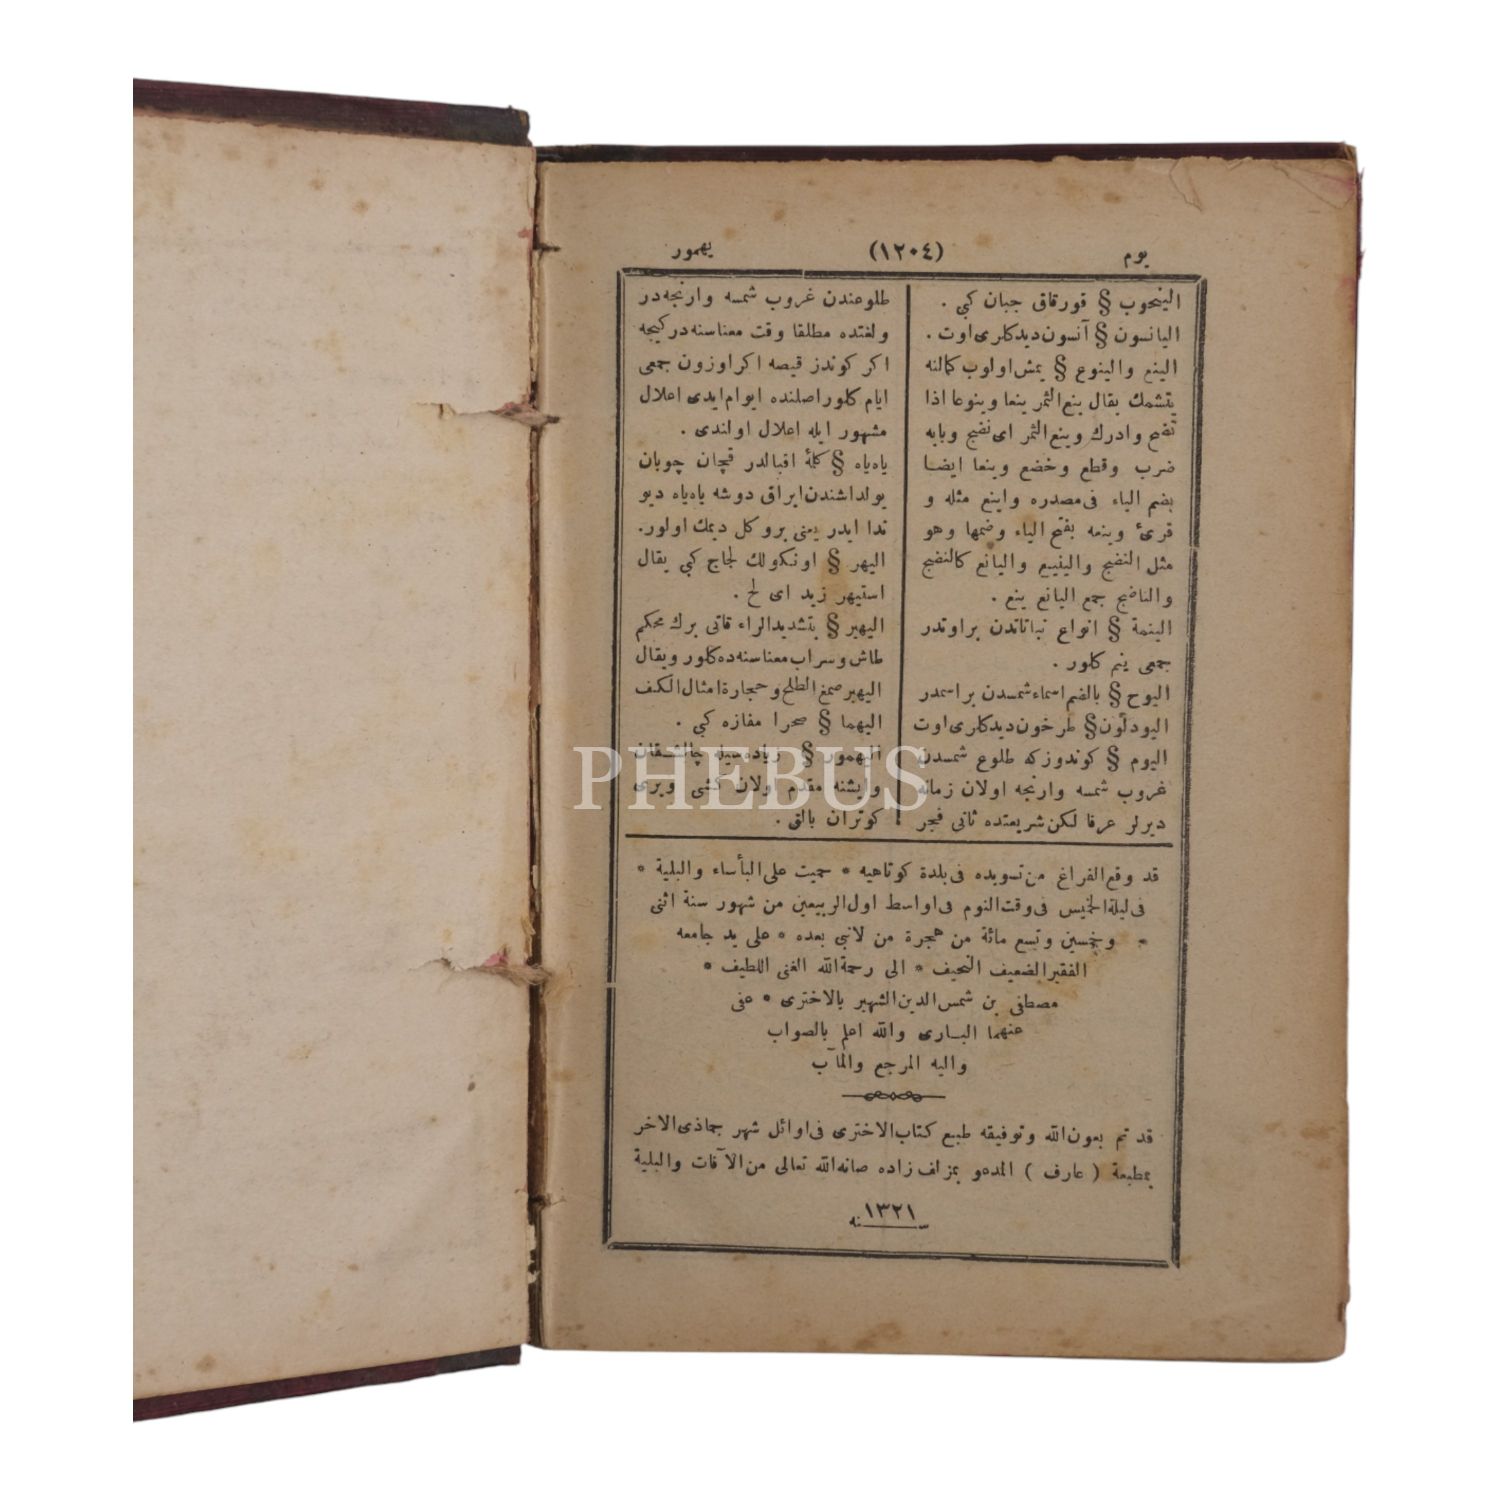 يوم (١٢٠٤) يهمور
الينخوب § قورقاق جبان كبى .
اليانسون § آنسون ديدكلرى اوت .
الينع والينوع § يمش اولوب كمالنه
يتشمك يقال ينع الثمر ينعا وينوعا اذا
نضج وادرك وينع الثمر اى نضج وبابه
ضرب وقطع وخضع وينعا ايضا
بضم الياء فى مصدره واينع مثله و
قرئ وينعه بفتح الياء وضمها وهو
مثل النضج والينيع واليانع كالنضج
والناضج جمع اليانع ينع .
الينمة § انواع نباتاتدن براوتدر
جمعى ينم كلور .
اليوح § بالضم اسماء شمسدن براسمدر
§ طرخون ديدكلرى اوت
اليوم § كوندوزكه طلوع شمسدن
غروب شمسه وارنجه اولان زمانه
ديرلر عرفا لكن شريعتده ثانى فجر
طلوعندن غروب شمسه وارنجه در
ولغتده مطلقا وقت معناسنه در كيجه
اكر كوندز قيصه اكر اوزون جمعى
ايام كلور اصلنده ايوام ايدى اعلال
مشهور ايله اعلال اولندى .
ياه ياه § كلهٔ اقبالدر قچان چوبان
يولداشندن ايراق دوشه ياه ياه ديو
ندا ايدر يعنى برو كل ديمك اولور.
اليهر § اونكولك لجاج كبى يقال
استيهر زيد اى لح .
اليهير § بتشديد الراء قاتى برك محكم
طاش وسراب معناسنه ده كلور ويقال
اليهير صمغ الطلح وحجارة امثال الكف
اليهما § صحرا مفازه كبى .
اليهمور § زياده سيله چالشقان
وايشنه مقدم اولان كشى ويرى
كوتران بالق .
قد وقع الفراغ من تسويده فى بلدة كوتاهيه * حميت على البأساء والبلية *
فى ليلة الخميس فى وقت النوم فى اواسط اول الربيعين من شهور سنة اثنى
* وخمسين وتسع مائة من هجرة من لانبى بعده * على يد جامعه
الفقير الضعيف النحيف * الى رحمة الله الغنى اللطيف *
مصطفى بن شمس الدين الشهير بالاخترى * عفى
عنهما البارى والله اعلم بالصواب
واليه المرجع والمآب
قد تم بعون الله وتوفيقه طبع كتاب الاخترى فى اوائل شهر جماذى الاخر
بمطبعة ( عارف ) المدعو بمزلف زاده صانه الله تعالى من الآفات والبلية
سنه ١٣٢١
PHEBUS